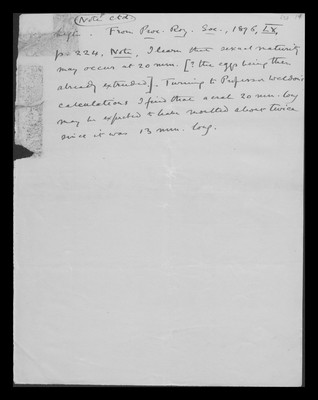 (Note ctd)
From Proc. Roy. Soc., 1896, LX,
p. 224, Note, I learn that sexual maturity
may occur at 20 mm. [? the eggs being then
already extruded]. Turning to Professor Weldon's
calculations I find that a crab 20 mm. long
may be expected to have moulted about twice
since it was 13 mm. long.